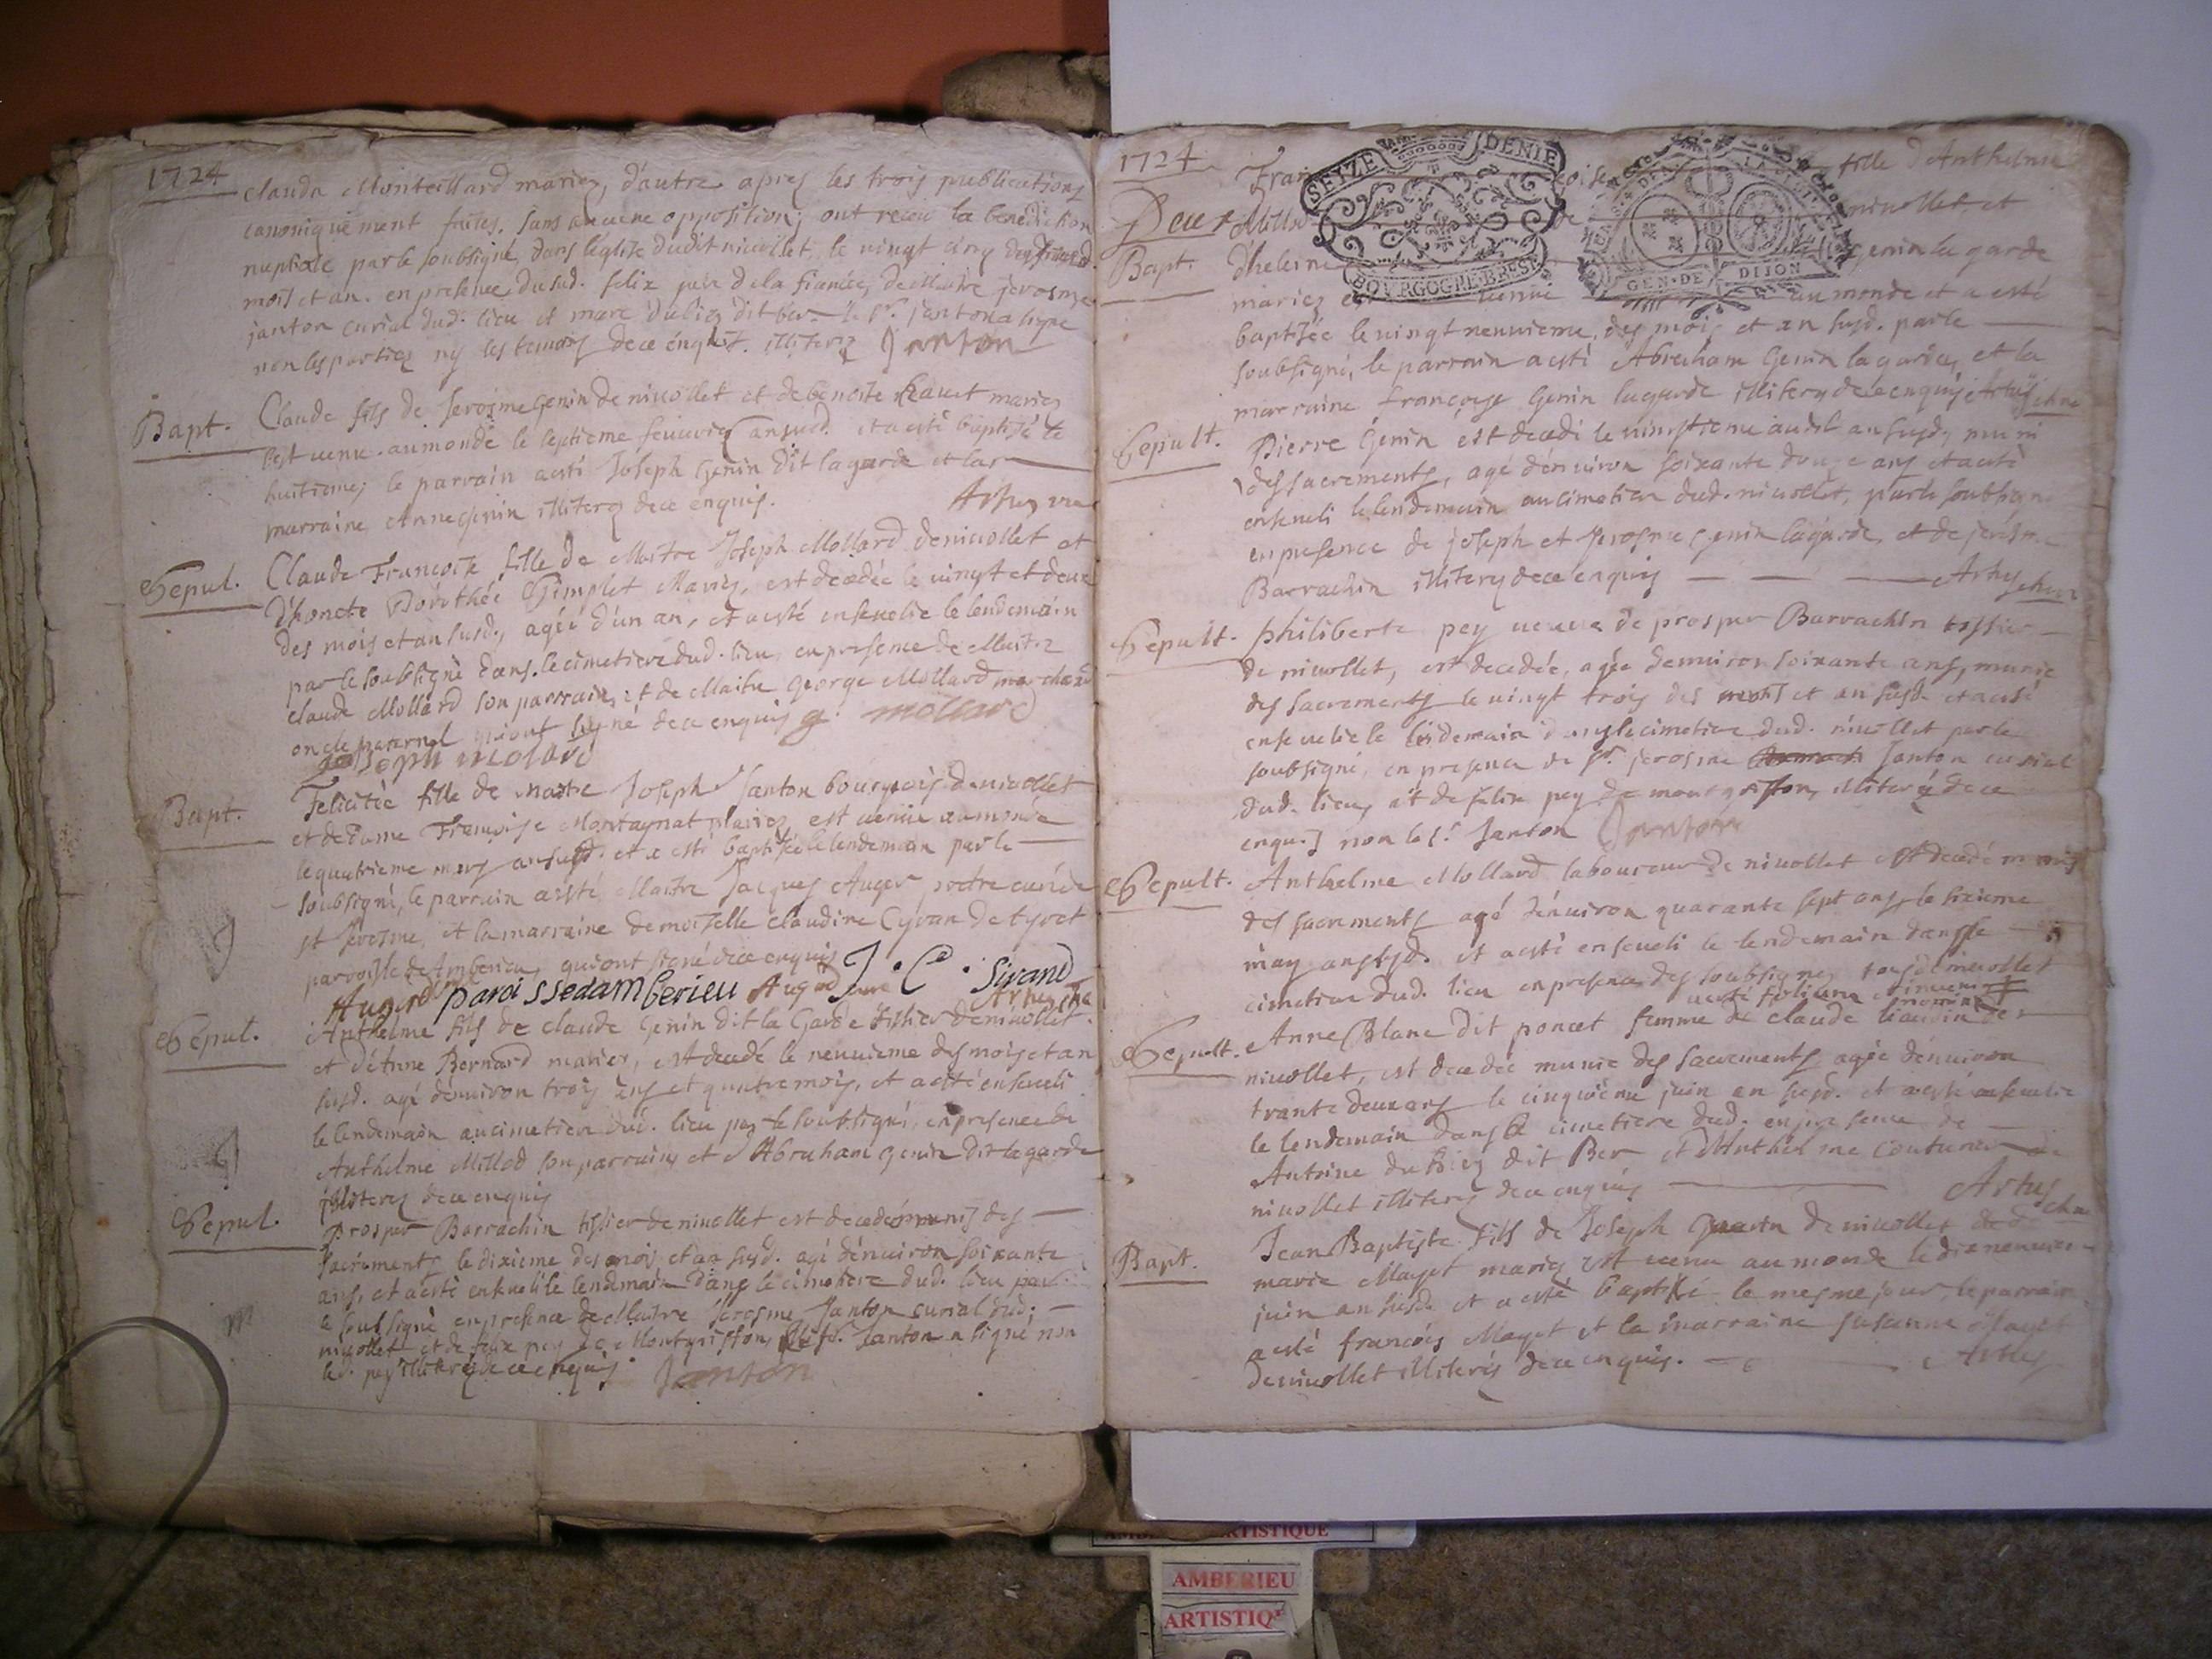 1724
Claude Monteillard mariez, d'autre apres les trois publications
canoniquement faites, sans aucune opposition, ont receu la benediction
nuptiale par le soubsigné, dans l'eglise dudit nivollet, le vingt cinq des susd.
mois et an. en presence, du sud. felix pere de la fiancée, de Maitre jerosme
janton curial dud. lieu et marc dubiez dit ber le Sr. janton a signe
non les parties ny les temoins de ce enquis. illiterez Janton
Bapt. Claude fils de Jerosme Genin de nivollet et de benoite mariez
est venu au monde le septieme fevrier an susd. et a esté baptisé le
huitieme, le parrain a esté Joseph Genin dit lagarde et la
marraine Anne Genin illiterez de ce enquis.
Sepul. Claude Françoise fille de Maitre Joseph Mollard de nivollet et
d'honeste Dorothée Mariez, est decedée le vingt et deux
des mois et an susd., agée d'un an, et a esté ensevelie le lendemain
par le soubsigné dans le cimetiere dud. lieu, en presence de Maitre
claude Mollard son parrain, et de Maitre George Mollard marchand
oncle paternel qui ont signé de ce enquis g. mollard
joseph molard
Bapt. Felicitée fille de Maitre Joseph Janton bourgeois de nivollet
et de Dame Françoise Montagnat mariez, est venue au monde
le quatrieme mars an susd. et a esté baptisée le lendemain par le
soubsigné, le parrain a esté Maitre Jacques Auger curé de
st Jerosme, et la marraine demoiselle Claudine Cyvan de tyret
parroisse de Amberieu, qui ont signé de ce enquis J. C. Sivand
paroissedamberieu
Sepul. Anthelme fils de Claude Genin dit la Garde tissier de nivollet
et d'Anne Bernard mariez, est decedé le neuvieme des mois et an
susd. agé d'environ trois ans et quatre mois, et a esté enseveli
le lendemain au cimetiere dud. lieu par le soubsigné, en presence de
Anthelme Millod son parrain, et d'Abraham genin dit lagarde
illiterez de ce enquis
Sepul. Prosper Barrachin tissier de nivollet est decedé munis des
sacrements le dixieme des mois et an susd. agé d'environ soixante
ans, et a esté enseveli le lendemain dans le cimetiere dud. lieu par
le soubsigné en presence de Maitre Jerosme Janton curial dud.
nivollet et de felix pey de Montgriffon, led. Sr. Janton a signé non
led. pey illiteré de ce enquis Janton
1724
SEYZE DENIE
BOURGOGNE·BRESSE
GEN·DE DIJON
fille d'Anthelme
Deux Millod de nivollet et
Bapt. d'heleine genin la garde
mariez est venue au monde et a esté
baptisée le vingt neuvieme, des mois et an susd. par le
soubsigné, le parrain a esté Abraham Genin lagarde, et la
marraine Françoise Genin lagarde illiterez de ce enquis Artus
Sepult. Pierre Genin est decedé le avril an susd., muni
des sacrements, agé d'environ soixante douze ans et a esté
enseveli le lendemain au cimetiere dud. nivollet, par le soubsigné
en presence de joseph et Jerosme genin lagarde, et de jerosme
Barrachin illiterez de ce enquis Artus
Sepult. philiberte pey veuve de prosper Barrachin tissier
de nivollet, est decedée, agée d'environ soixante ans, munie
des sacrements le vingt trois des mois et an susd. et a esté
ensevelie le lendemain dans le cimetiere dud. nivollet par le
soubsigné, en presence de Sr. jerosme Janton curial
dud. lieu, et de felix pey de montgriffon, illiteré de ce
enquis non le Sr. Janton Janton
Sepult. Anthelme Mollard laboureur de nivollet est decedé munis
des sacrements agé d'environ quarante sept ans, le sixieme
may an susd. et a esté enseveli le lendemain dans le
cimetiere dud. lieu en presence des soubsignez tous de nivollet
Sepult. Anne Blanc dit poncet femme de claude de
nivollet, est decedée munie des sacrements agée d'environ
trante deux ans le cinquième juin an susd. et a esté ensevelie
le lendemain dans le cimetiere dud. en presence de
Antoine du biez dit Ber et d'Anthelme Couturier de
nivollet illiterez de ce enquis Artus
Bapt. Jean Baptiste fils de Joseph de nivollet et de
marie Mayet mariez est venu au monde le dixneuvieme
juin an susd. et a esté baptisé le mesme jour, le parrain
a esté françois Mayet et la marraine Susanne Mayet
de nivollet illiterés de ce enquis. Artus
ARTISTIQUE
AMBERIEU
ARTISTIQ